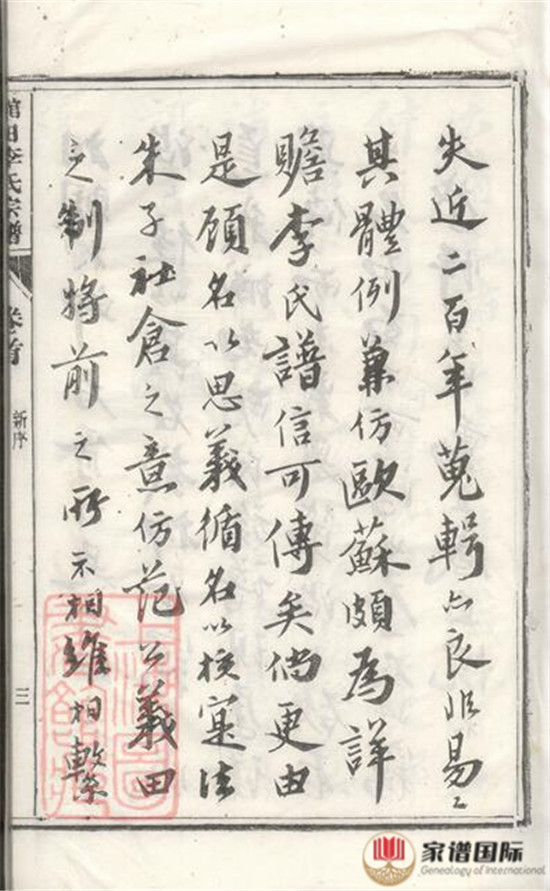 失近二百年蒐輯亦良非易々
其體例兼仿歐蘇頗為詳
贍李氏譜信可傳矣倘更由
是顧名以思義循名以核寔法
朱子社倉之意仿范公義田
之制將前之所示相維相繫
館田李氏宗譜
卷首
新序
三
家谱国际
Genealogy of International